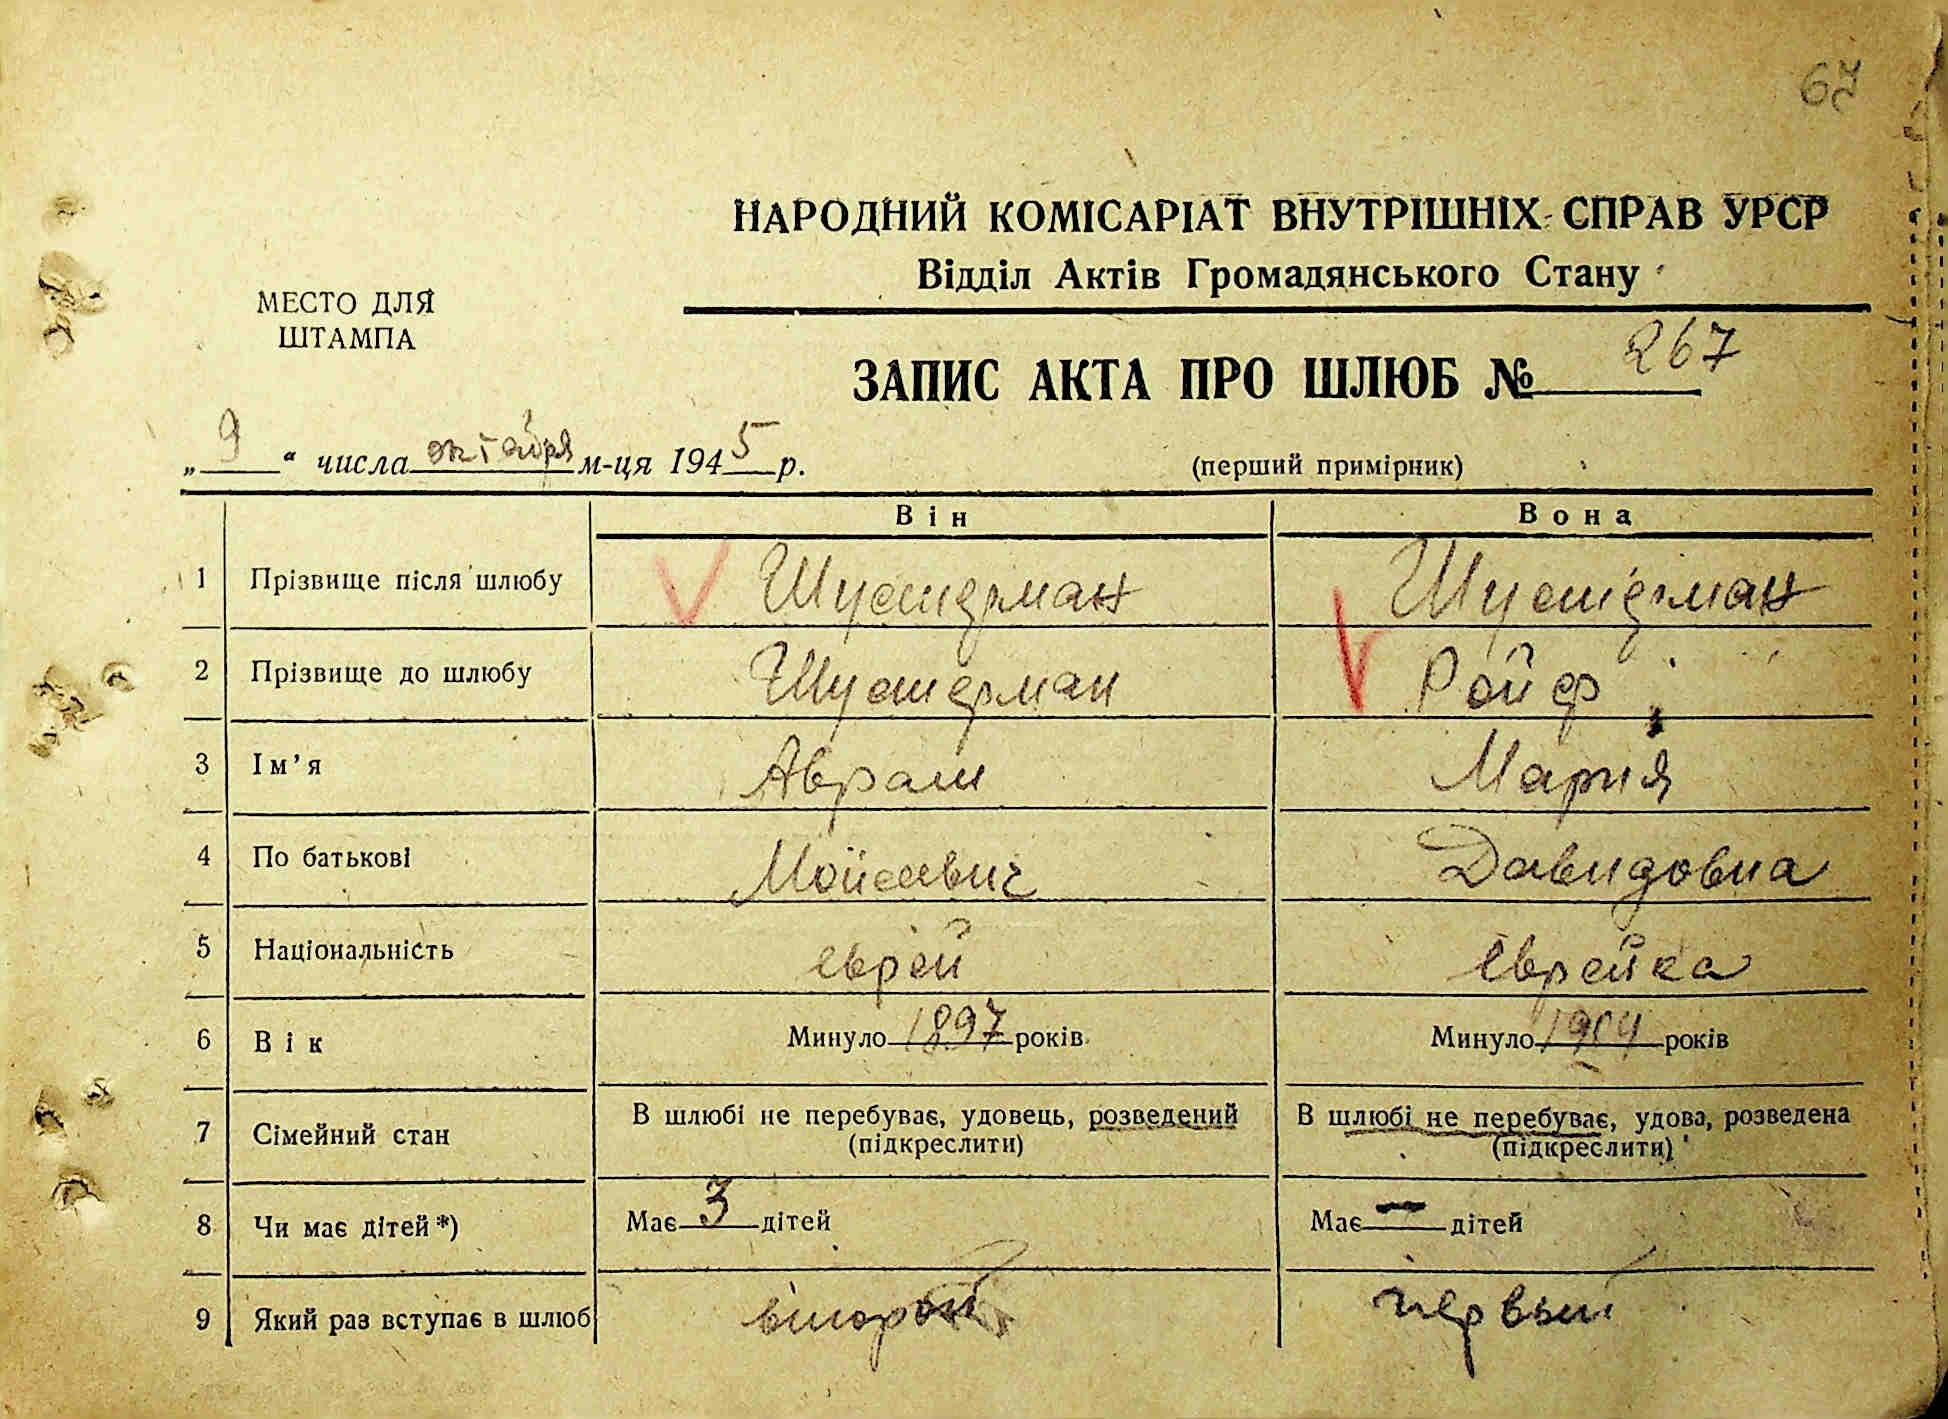 67
НАРОДНИЙ КОМІСАРІАТ ВНУТРІШНІХ СПРАВ УРСР
Відділ Актів Громадянського Стану
МЕСТО ДЛЯ
ШТАМПА
ЗАПИС АКТА ПРО ШЛЮБ № 267
„ 9 “ числа октября м-ця 1945 р.
(перший примірник)
Він Вона
1 Прізвище після шлюбу Шустерман Шустерман
2 Прізвище до шлюбу Шустерман Ройф
3 Ім’я Аврам Мария
4 По батькові Мойсеевич Давидовна
5 Національність еврей еврейка
6 Вік Минуло 1897 років Минуло 1904 років
7 Сімейний стан В шлюбі не перебуває, удовець, розведений (підкреслити) В шлюбі не перебуває, удова, розведена (підкреслити)
8 Чи має дітей*) Має 3 дітей Має — дітей
9 Який раз вступає в шлюб второй первый